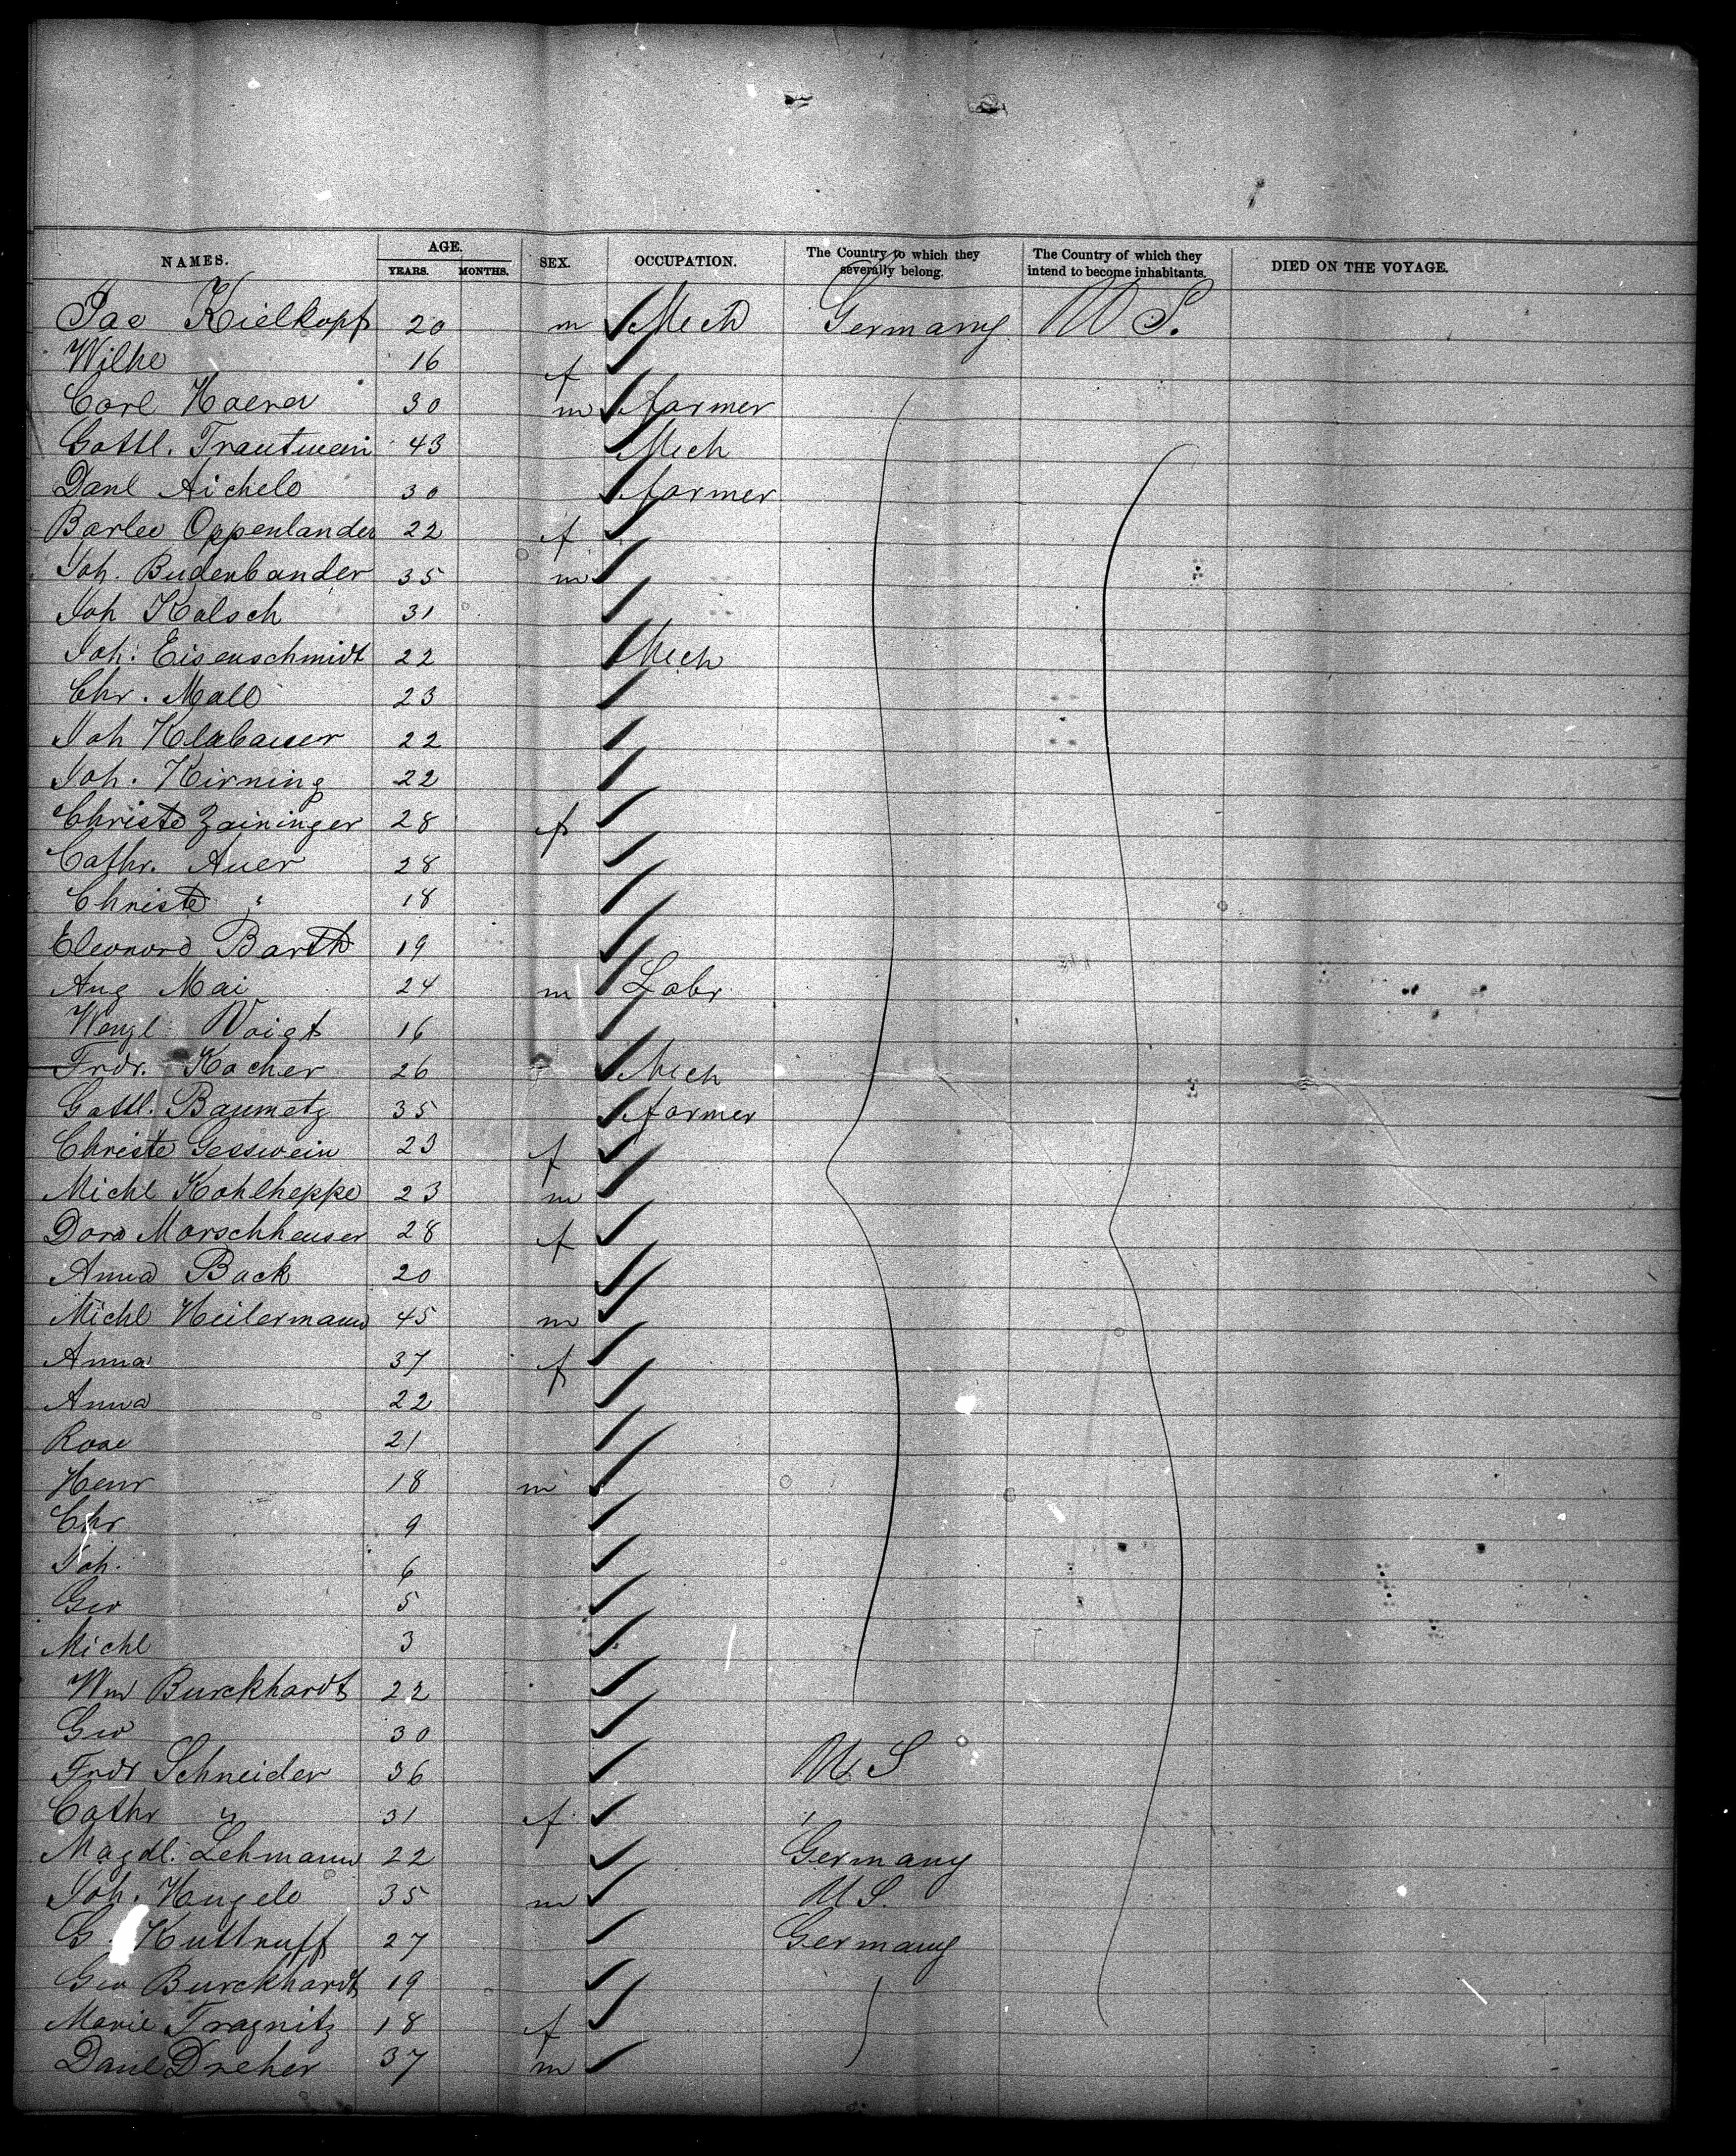 NAMES. AGE. SEX. OCCUPATION. The Country to which they severally belong. The Country of which they intend to become inhabitants. DIED ON THE VOYAGE.
YEARS. MONTHS.
Jac Kielkopf 20 m Mech Germany U S.
Wilhe 16 f
Carl 30 m farmer
Gottl. Trautwein 43 Mech
Danl Aichele 30 farmer
Oppenlander 22 f
Joh. Budenbander 35 m
Joh Kolsch 31
Joh. Eisenschmidt 22 Mech
Chr. Mall 23
Joh Klabauer 22
Joh. Hirning 22
Christe Zaininger 28 f
Cathr. Auer 28
Christe " 18
Eleonore Barth 19
Aug Mai 24 m Labr
Wenzl Voigt 16
Frdr. Kocher 26 Mech
Gottl. Baumetz 35 farmer
Christe Gesswein 23 f
Michl Kohlheppe 23 m
Dora Morschheuser 28 f
Anna Back 20
Michl Heilermann 45 m
Anna 37 f
Anna 22
Rose 21
Henr 18 m
Chr 9
Joh. 6
Geo 5
Michl 3
Wm Burckhardt 22
Geo 30
Frdr Schneider 36 U S
Cathr " 31 f "
Magdl. Lehmann 22 Germany
Joh. Hugele 35 m U S.
G. Kuttruff 27 Germany
Geo Burckhardt 19
Marie Tragnitz 18 f
Danl Dreher 37 m